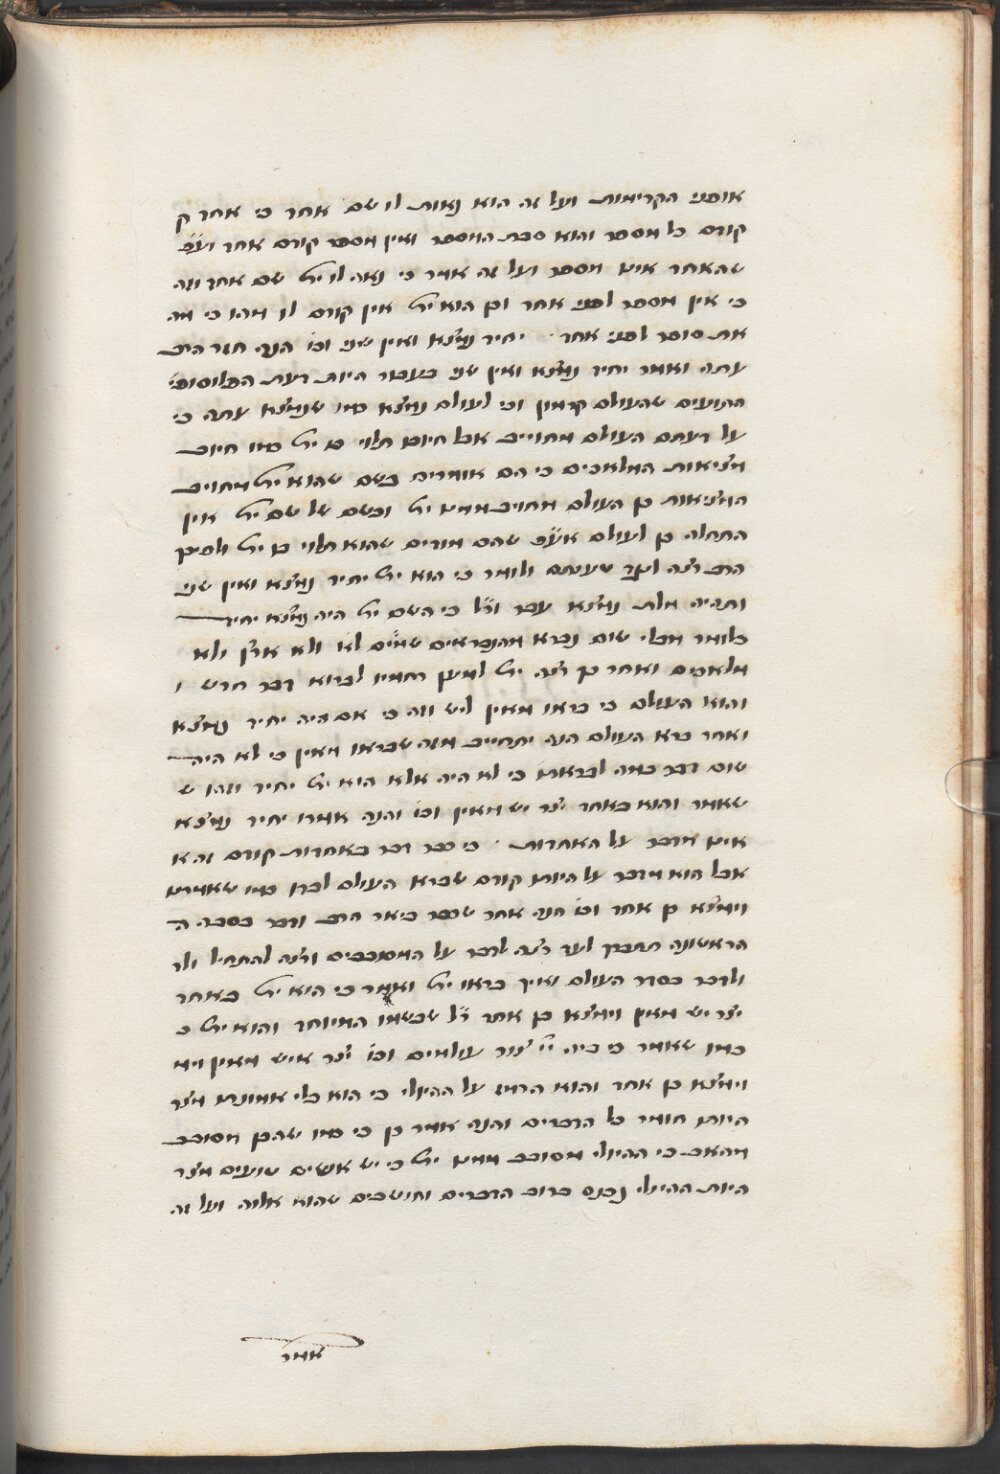 אופני הקדימות ועל זה הוא נאות לו שם אחד כי אחד ק
קודם כל מספר והוא סבת המספר ואין מספר קודם אחד ועכ
שהאחד אינו מספר ועל זה אמר כי נאה לו ית׳ שם אחד וזה
כי אין מספר לפני אחד וכן הוא ית׳ אין קודם לו וזהו כי מה
את סופר לפני אחד · יחיד נמצא ואין שני וכו׳ הנה חזר הרב
עתה ואמר יחיד נמצא ואין שני בעבור היות דעת הפלוסופי׳
התועים שהעולם קדמון וכי לעולם נמצא כמו שנמצא עתה כי
על דעתם העולם מחוייב אבל חיובו תלוי בו ית׳ כמו חיוב
מציאות המלאכים כי הם אומרים כשם שהוא ית׳ מחויב
המציאות כן העולם מחויב ממנו ית׳ וכשם של שם ית׳ אין
התחלה כן לעולם אע״פ שהם מודים שהוא תלוי בו ית׳
הרב רצה לומר ולומר כי הוא ית׳ יחיד נמצא ואין שני
ותהיה מלת נמצא עבר ור״ל כי השם ית׳ היה נמצא יחיד
כלומר מבלי שום נברא מהנבראים שמים לא ולא ארץ ולא
מלאכים ואחר כן רצה ית׳ למען רחמיו לברוא דבר חדש ו
והוא העולם כי בראו מאין ליש וזה כי אם היה יחיד נמצא
ואחר ברא העולם הנה יתחייב מזה שבראו מאין כי לא היה
שום דבר במה לבראתו כי לא היה אלא הוא ית׳ יחיד וזהו ש
שאמר והוא כאחד יצר יש מאין וכו׳ והנה אמרו יחיד נמצא
אינו מדבר על האחדות · כי כבר דבר באחדות קודם זה א
אבל הוא מדבר על היותו קודם שברא העולם לבדו כמו שאמרנו
וימצא כן אחד וכו׳ הנה אחר שספר ביאר הרב ודבר בסבה ה
הראשונה יתברך לעד רצה לדבר על המסובבים ורצה להתחיל ולד
ולדבר בסדר העולם ואיך בראו ית׳ ואמר כי הוא ית׳ כאחד
יצר יש מאין וימצא כן אחד ר״ל שבשמו המיוחד והוא ית׳ כ
כמו שאמר כי ביה יי׳ צור עולמים וכו׳ יצר איש מאין וימ
וימצא כן אחד והוא הרמז על ההיולי כי הוא בלי אמונתו מצד
היותו חומר כל הדברים והנה אמר כן כי כמו שהבן מסובב
מהאב כי ההיולי מסובב ממנו ית׳ כי יש אנשים טועים מצד
היות ההיולי נכנס ברוב הדברים וחושבים שהוא אלוה ועל זה
אמר